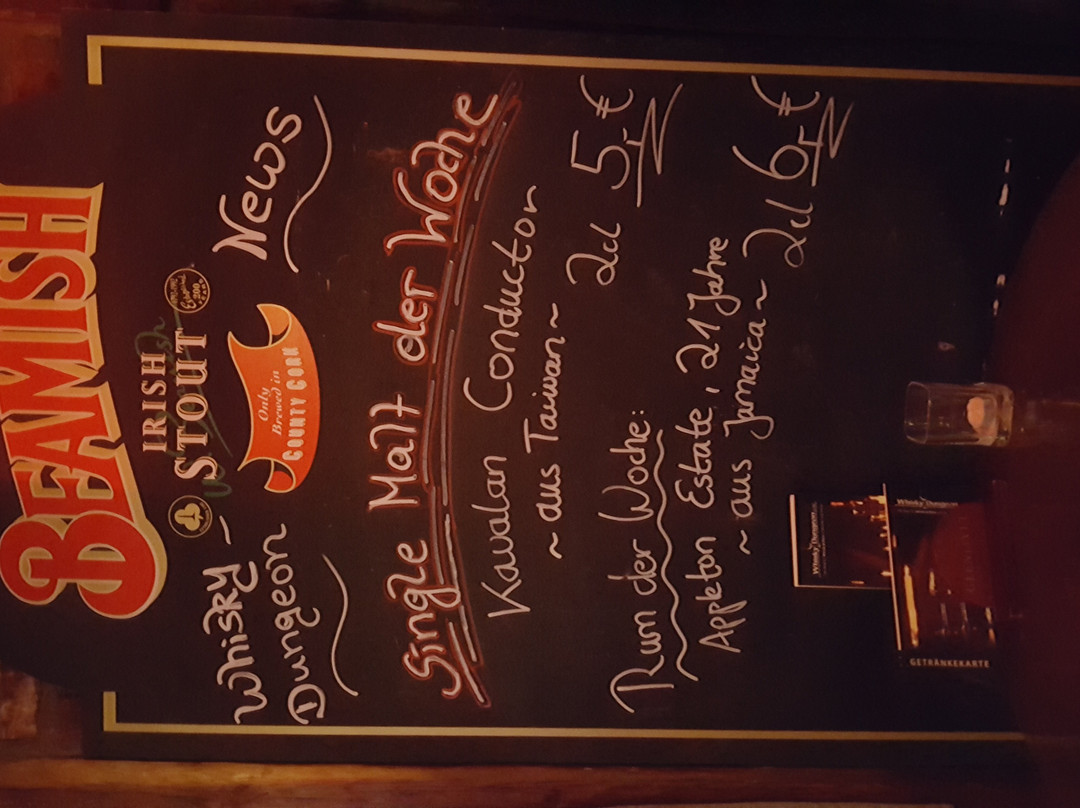 BEAMISH
IRISH
STOUT
Only
Brewed in
COUNTY CORK
Whisky-
Dungeon
News
Single Malt der Woche
Kavalan Conductor
~ aus Taiwan ~
2cl 5,-€
Rum der Woche:
Appleton Estate, 21 Jahre
~ aus Jamaica ~
2cl 6,-€
Whisky Dungeon
Whisky Dungeon
GETRÄNKEKARTE